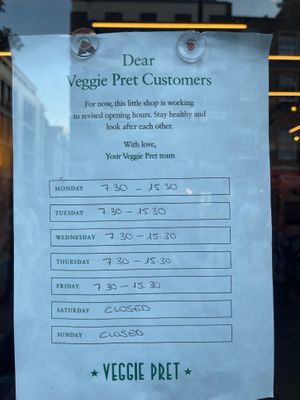 Dear
Veggie Pret Customers
For now, this little shop is working
to revised opening hours. Stay healthy and
look after each other.
With love,
Your Veggie Pret team
MONDAY 7.30 - 15.30
TUESDAY 7.30 - 15.30
WEDNESDAY 7.30 - 15.30
THURSDAY 7.30 - 15.30
FRIDAY 7.30 - 15.30
SATURDAY CLOSED
SUNDAY CLOSED
★ VEGGIE PRET ★